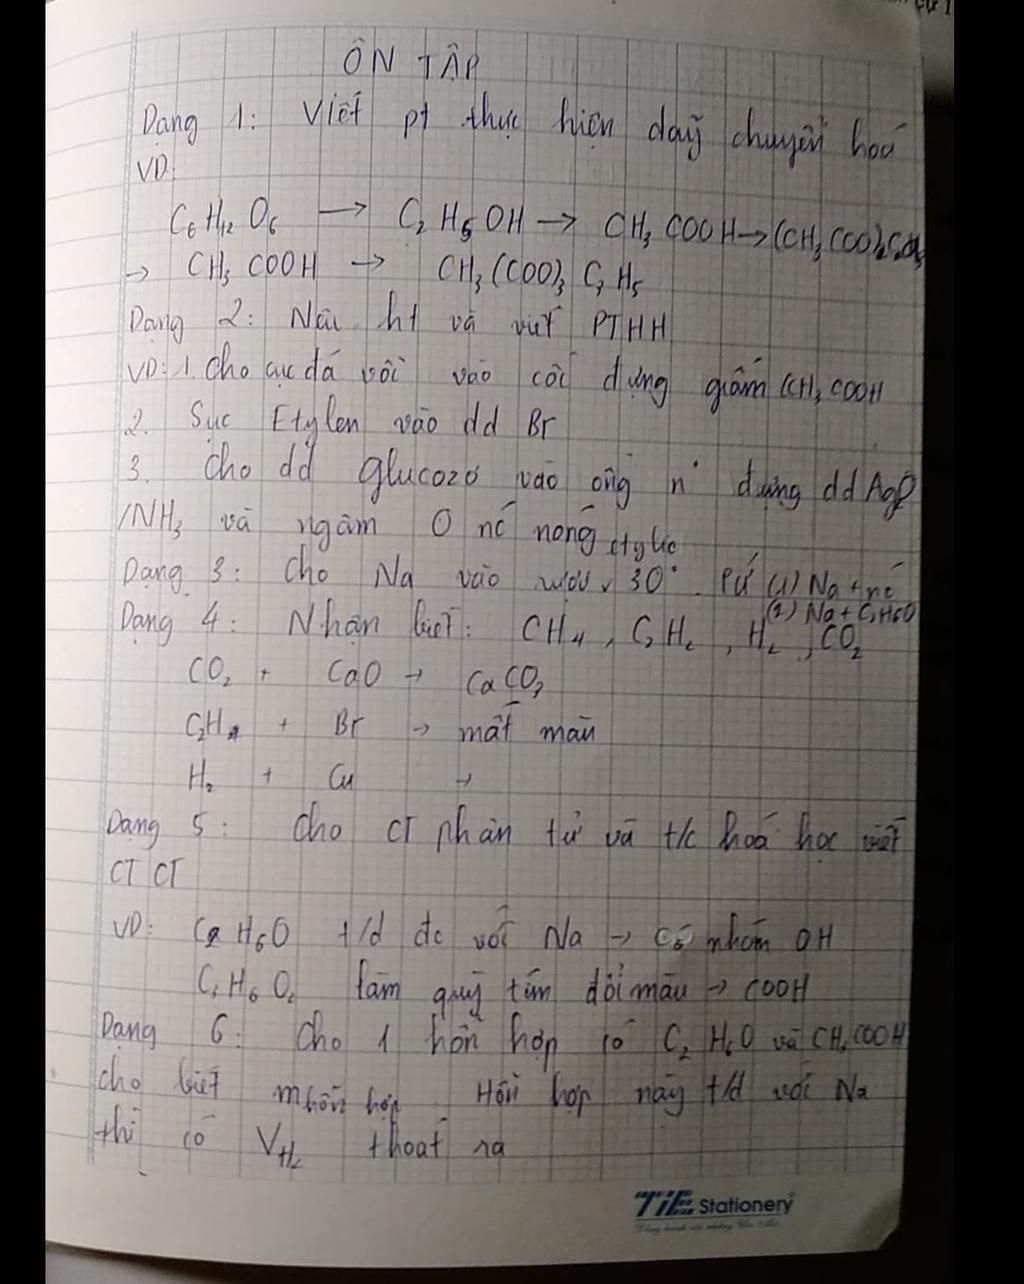 ÔN TẬP
Dạng 1: Viết pt thực hiện dãy chuyển hoá
VD:
C₆H₁₂O₆ → C₂H₅OH → CH₃COOH →
→ CH₃COOH → CH₃(COO)₃C₃H₅
Dạng 2: Nêu ht và viết PTHH
VD: 1. Cho cục đá vôi vào cốc đựng giấm CH₃COOH
2. Sục Etylen vào dd Br
3. Cho dd glucozơ vào ống n° đựng dd
/NH₃ và ngâm O nc nóng
etylic
Dạng 3: Cho Na vào rượu 30° Pứ (1) Na + nc
(2) Na + C₂H₆O
Dạng 4: Nhận biết: CH₄, , H₂, CO₂
CO₂ + CaO → CaCO₃
+ Br → mất màu
H₂ + Cu →
Dạng 5: Cho CT phân tử và t/c hoá học viết
CTCT
VD: C₂H₆O t/d đc với Na → có nhóm OH
làm quỳ tím đổi màu → COOH
Dạng 6: Cho 1 hỗn hợp có C₂H₆O và CH₃COOH
cho biết m hỗn hợp Hỗn hợp này t/d với Na
thì có V H₂ thoát ra
TiE Stationery